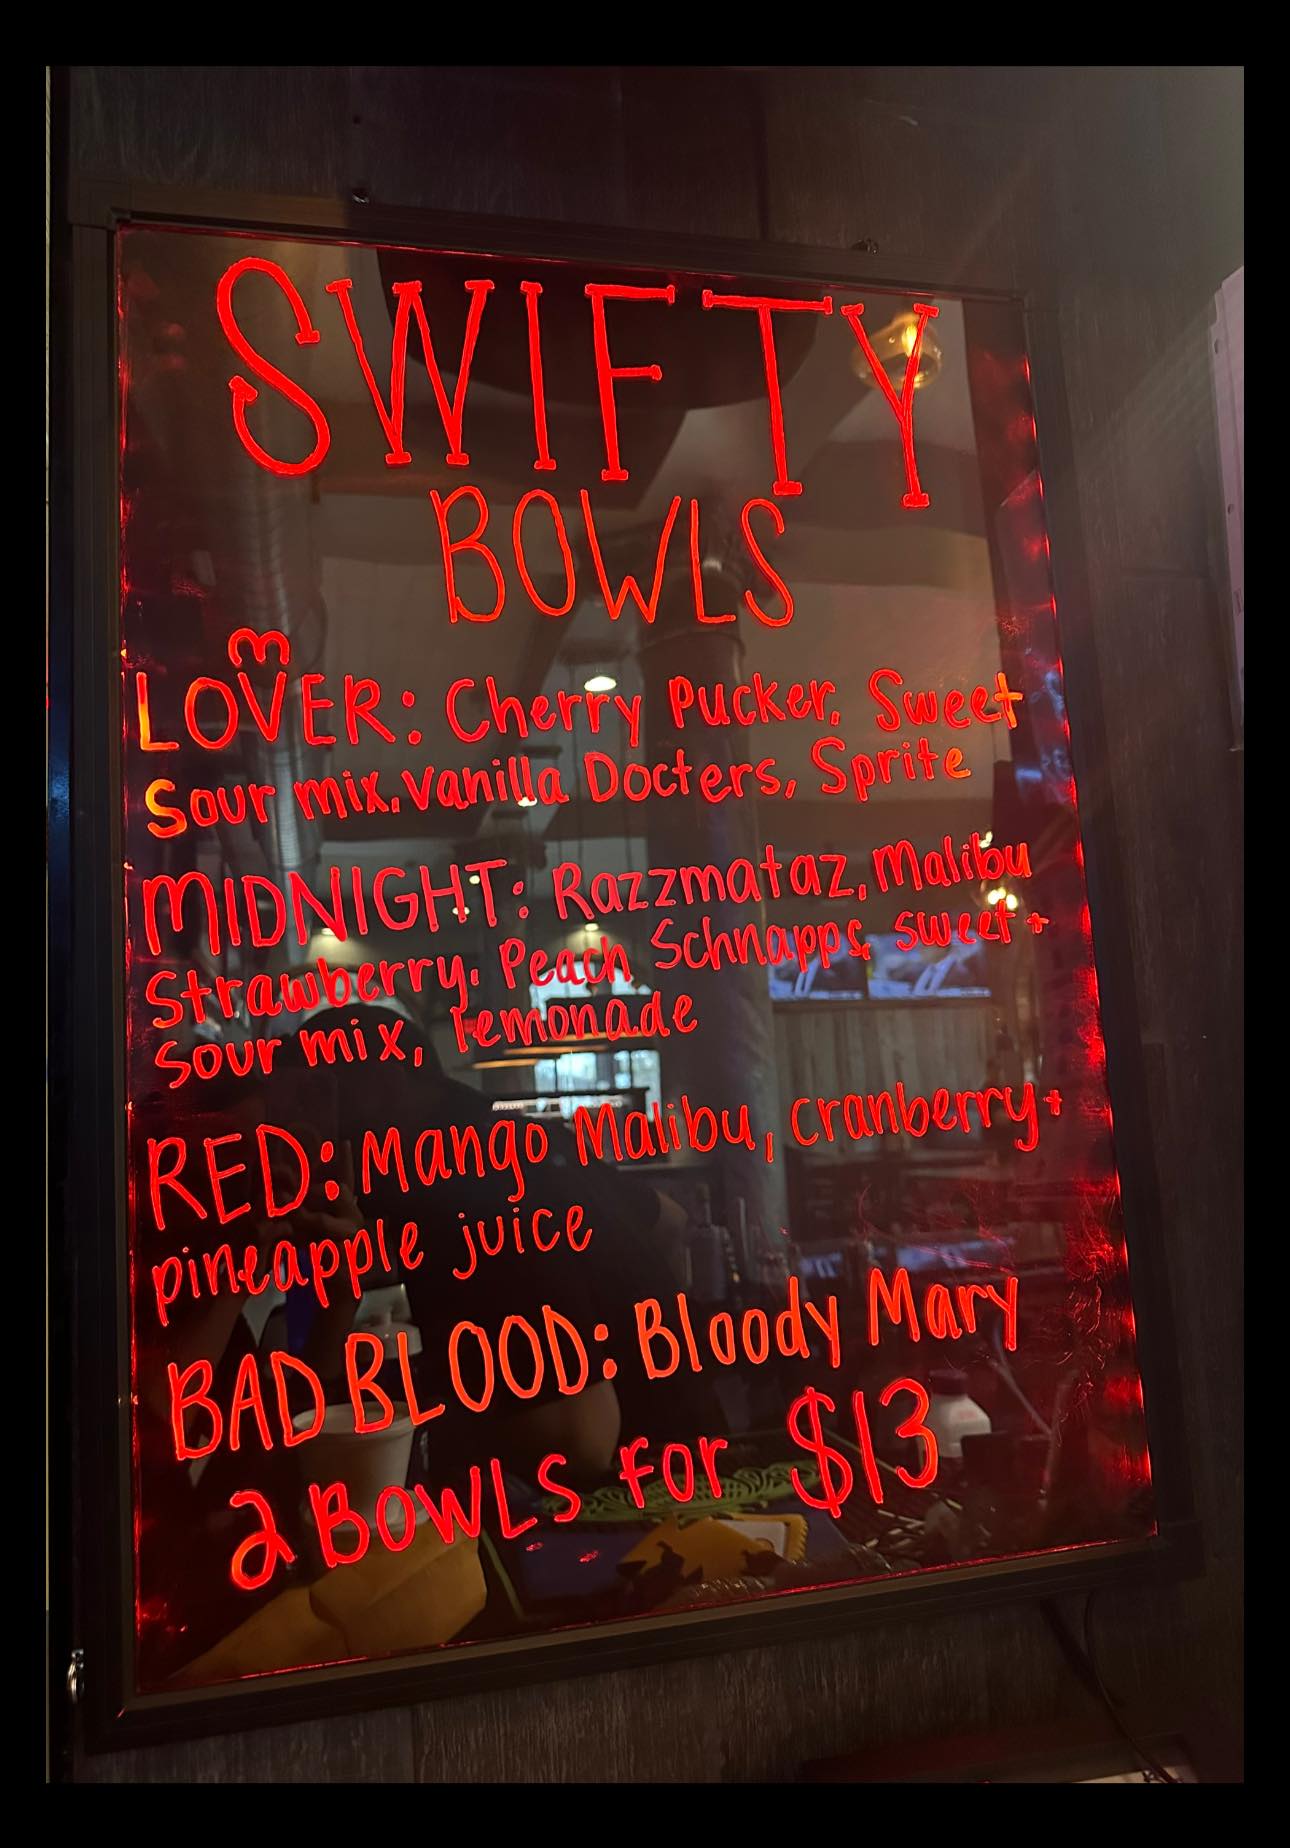 SWIFTY
BOWLS
LOVER: Cherry Pucker, Sweet
Sour mix, Vanilla Docters, Sprite
MIDNIGHT: Razzmataz, Malibu
Strawberry, Peach Schnapps, sweet +
sour mix, lemonade
RED: Mango Malibu, cranberry +
pineapple juice
BAD BLOOD: Bloody Mary
2 BOWLS FOR $13